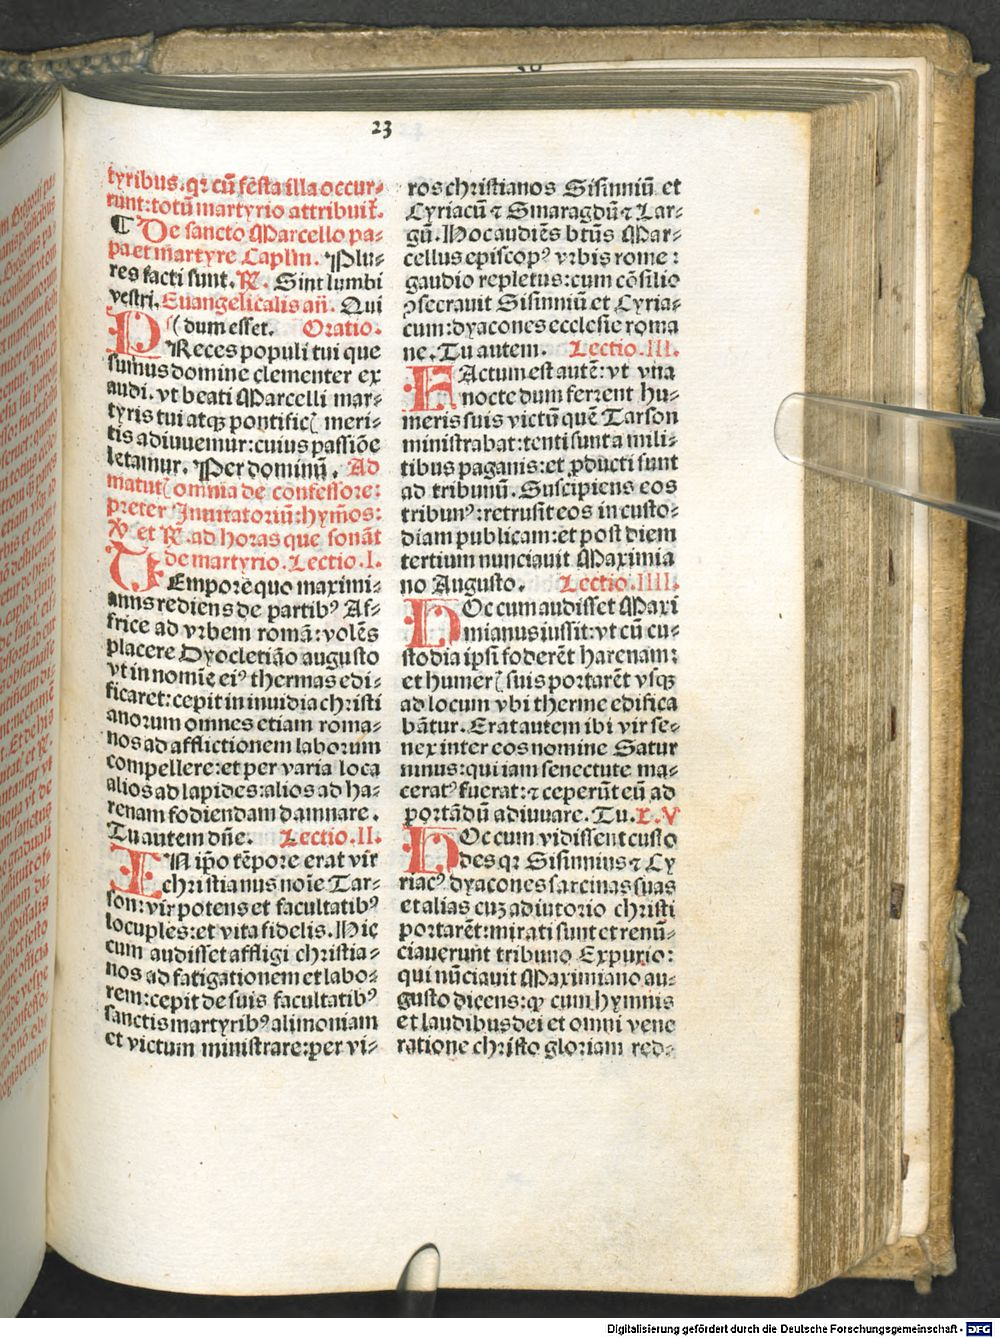 23
tyribus.qꝛ cũ festa illa occur⸗
runt:totũ martyrio attribuiť.
¶ De sancto Marcello pa⸗
pa et m̃artyre Caplm̃. Plu⸗
res facti sunt. ℟. Sint lumbi
vestri. Euangelicalis añ. Qui
dum esset. Oratio.
PReces populi tui que
sumus domine clementer ex
audi. vt beati Marcelli mar⸗
tyris tui atqꝫ pontificꝭ meri⸗
tis adiuuemur:cuius passiõe
letamur. Per dominũ. Ad
matutꝭ omnia de confessore:
preter Inuitatoriũ:hym̃os:
℣ et ℟. ad horas que sonãt
de martyrio. Lectio.I.
TEmpore quo maximi⸗
anus rediens de partibꝰ Af⸗
frice ad vrbem romã:volẽs
placere Dyocletião augusto
vt in nomĩe eiꝰ thermas edi⸗
ficaret:cepit in inuidia christi
anorum omnes etiam roma⸗
nos ad afflictionem laborum
compellere:et per varia loca
alios ad lapides:alios ad ha⸗
renam fodiendam damnare.
Tu autem dñe. Lectio.II.
IN ip̃o tẽpore erat vir
christianus noĩe Tar⸗
son:vir potens et facultatibꝰ
locuples:et vita fidelis. Hic
cum audisset affligi christia⸗
nos ad fatigationem et labo⸗
rem:cepit de suis facultatibꝰ
sanctis martyribꝰ alimoniam
et victum ministrare:per vi⸗
ros christianos Sisinniũ et
Cyriacũ ⁊ Smaragdũ ⁊ Lar⸗
gũ. Hoc audiẽs btũs Mar⸗
cellus episcopꝰ vrbis rome:
gaudio repletus:cum cõsilio
ꝯsecrauit Sisinniũ et Cyria⸗
cum:dyacones ecclesie roma
ne. Tu autem. Lectio.III.
FActum est autẽ:vt vna
nocte dum ferrent hu⸗
meris suis victũ quẽ Tarson
ministrabat:tenti sunt a mili⸗
tibus paganis:et ꝓducti sunt
ad tribunũ. Suscipiens eos
tribunꝰ:retrusit eos in custo⸗
diam publicam:et post diem
tertium nunciauit Maximia
no Augusto. Lectio.IIII.
HOc cum audisset Maxi
mianus iussit:vt cũ cu⸗
stodia ip̃si foderẽt harenam:
et humerꝭ suis portarẽt vsqꝫ
ad locum vbi therme edifica
bãtur. Erat autem ibi vir se⸗
nex inter eos nomine Satur
ninus:qui iam senectute ma⸗
ceratꝰ fuerat:⁊ ceperũt eũ ad
portãdũ adiuuare. Tu. L.V
HOc cum vidissent custo
des qꝛ Sisinnius ⁊ Cy
riacꝰ dyacones sarcinas suas
et alias cuꝫ adiutorio christi
portarẽt:mirati sunt et renũ⸗
ciauerunt tribuno Expurio:
qui nũciauit Maximiano au⸗
gusto dicens:ꝙ cum hymnis
et laudibus dei et omni vene
ratione christo gloriam red⸗
Digitalisierung gefördert durch die Deutsche Forschungsgemeinschaft - DFG